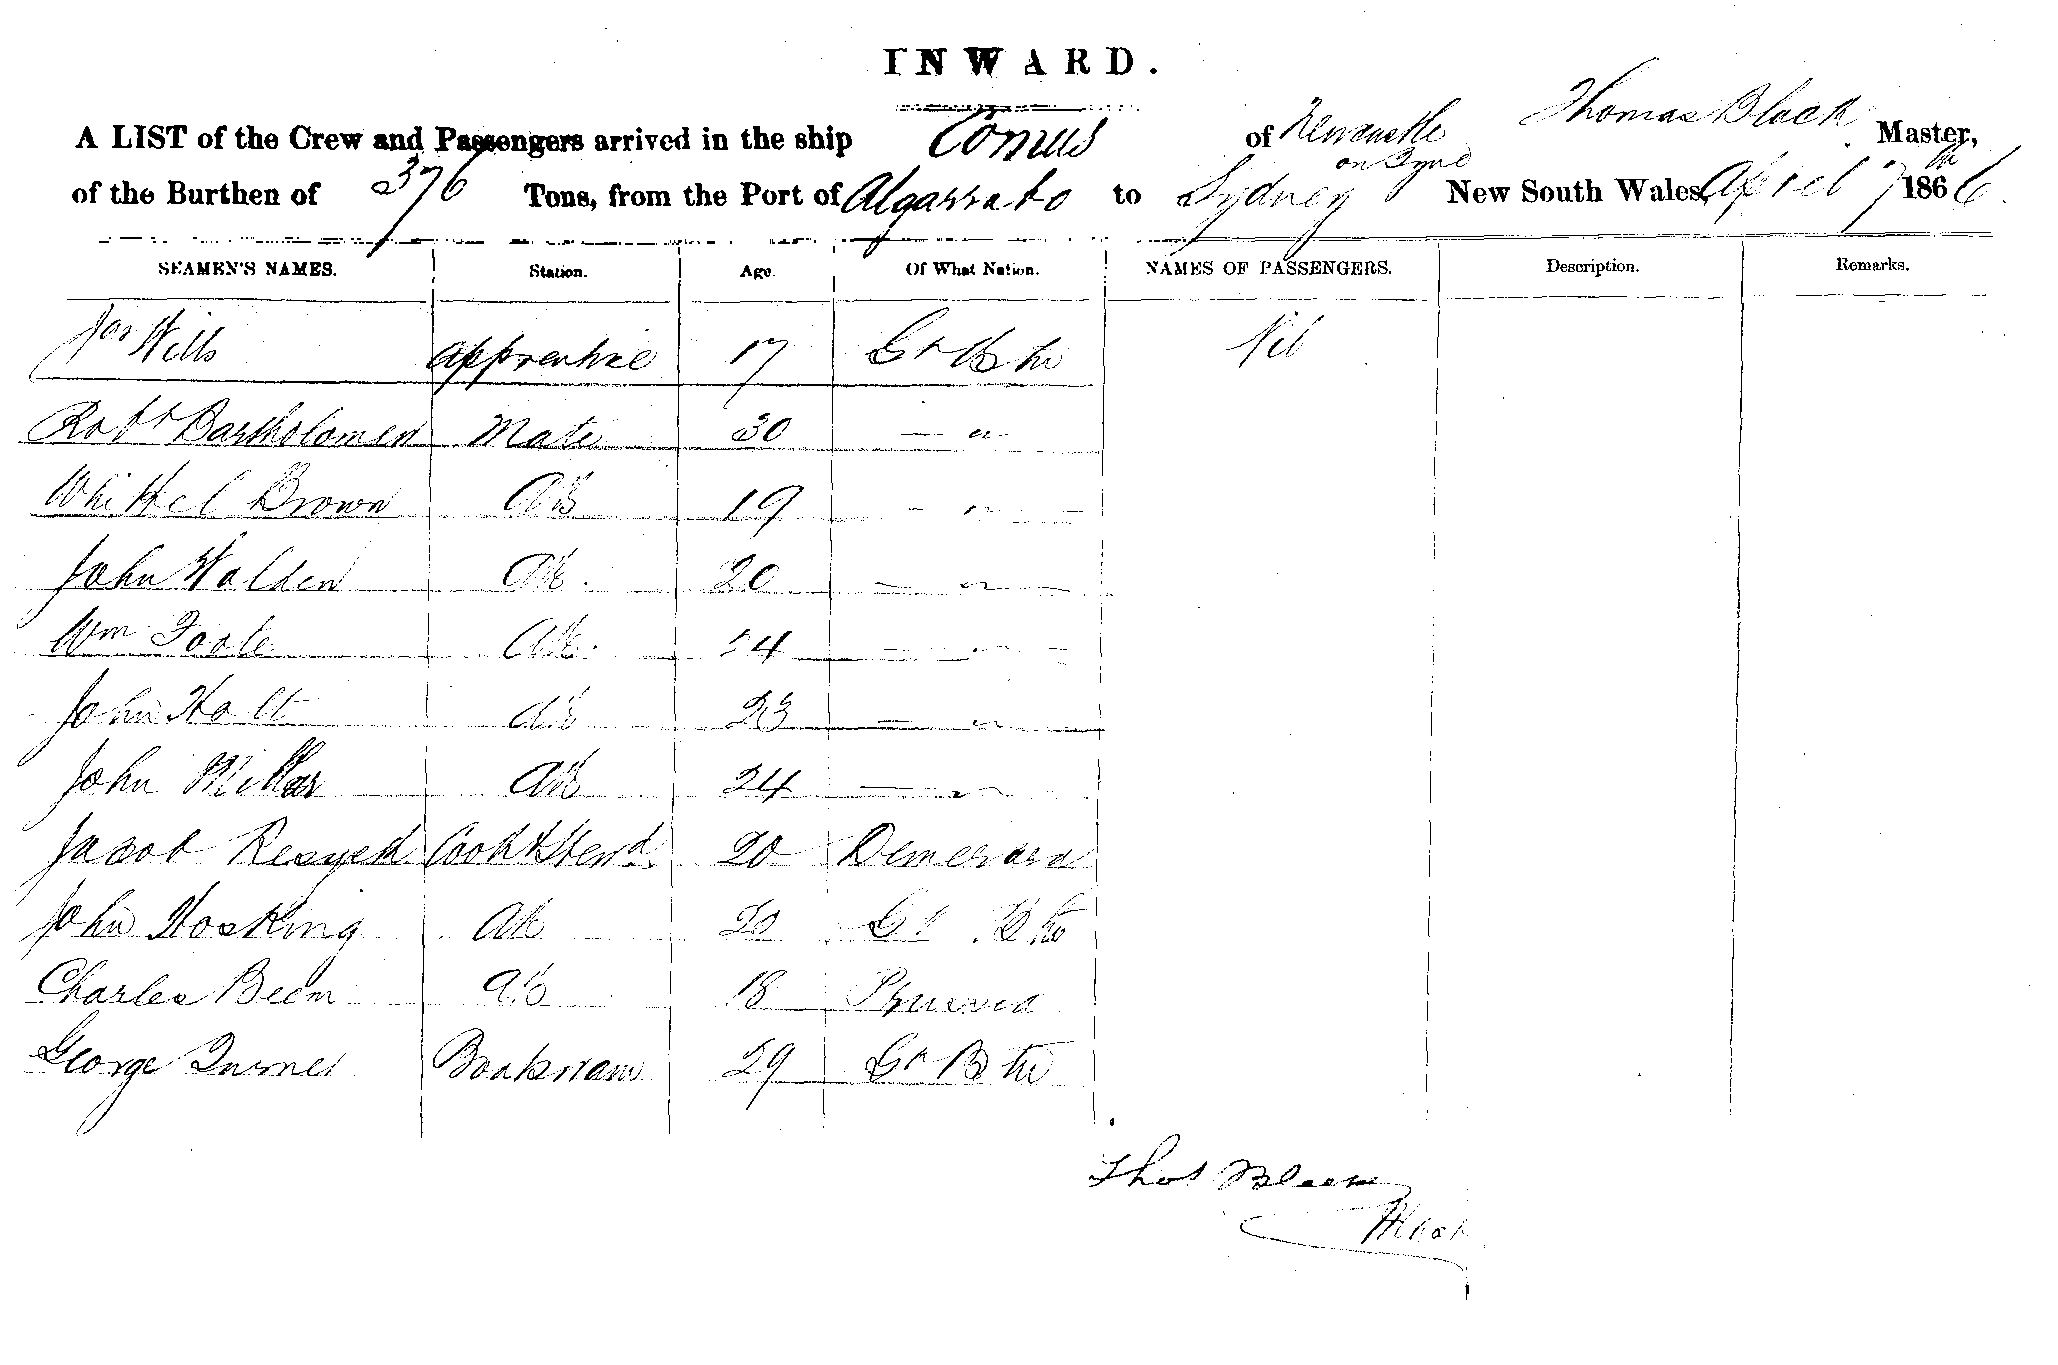 INWARD.
A LIST of the Crew and Passengers arrived in the ship Comus of Newcastle on Tyne Thomas Black Master,
of the Burthen of 376 Tons, from the Port of Algarrabo to Sydney New South Wales, April 7th 1866.
SEAMEN'S NAMES. Station. Age. Of What Nation. NAMES OF PASSENGERS. Description. Remarks.
Jas Wills apprentice 17 Gt Btn Nil
Robt Bartholomew Mate 30 — " —
Whittel Brown AB 19 — " —
John Walden AB. 20 — " —
Wm Toole AB. 24 — " —
John Holt AB 23 — " —
John Millar AB 24 — " —
Jacob Cook & Stewd 20 Demerara
John Hosking AB 20 Gt Btn
Charles Beem AB 18 Prussia
George Turner 29 Gt Btn
Thos Black
Mast